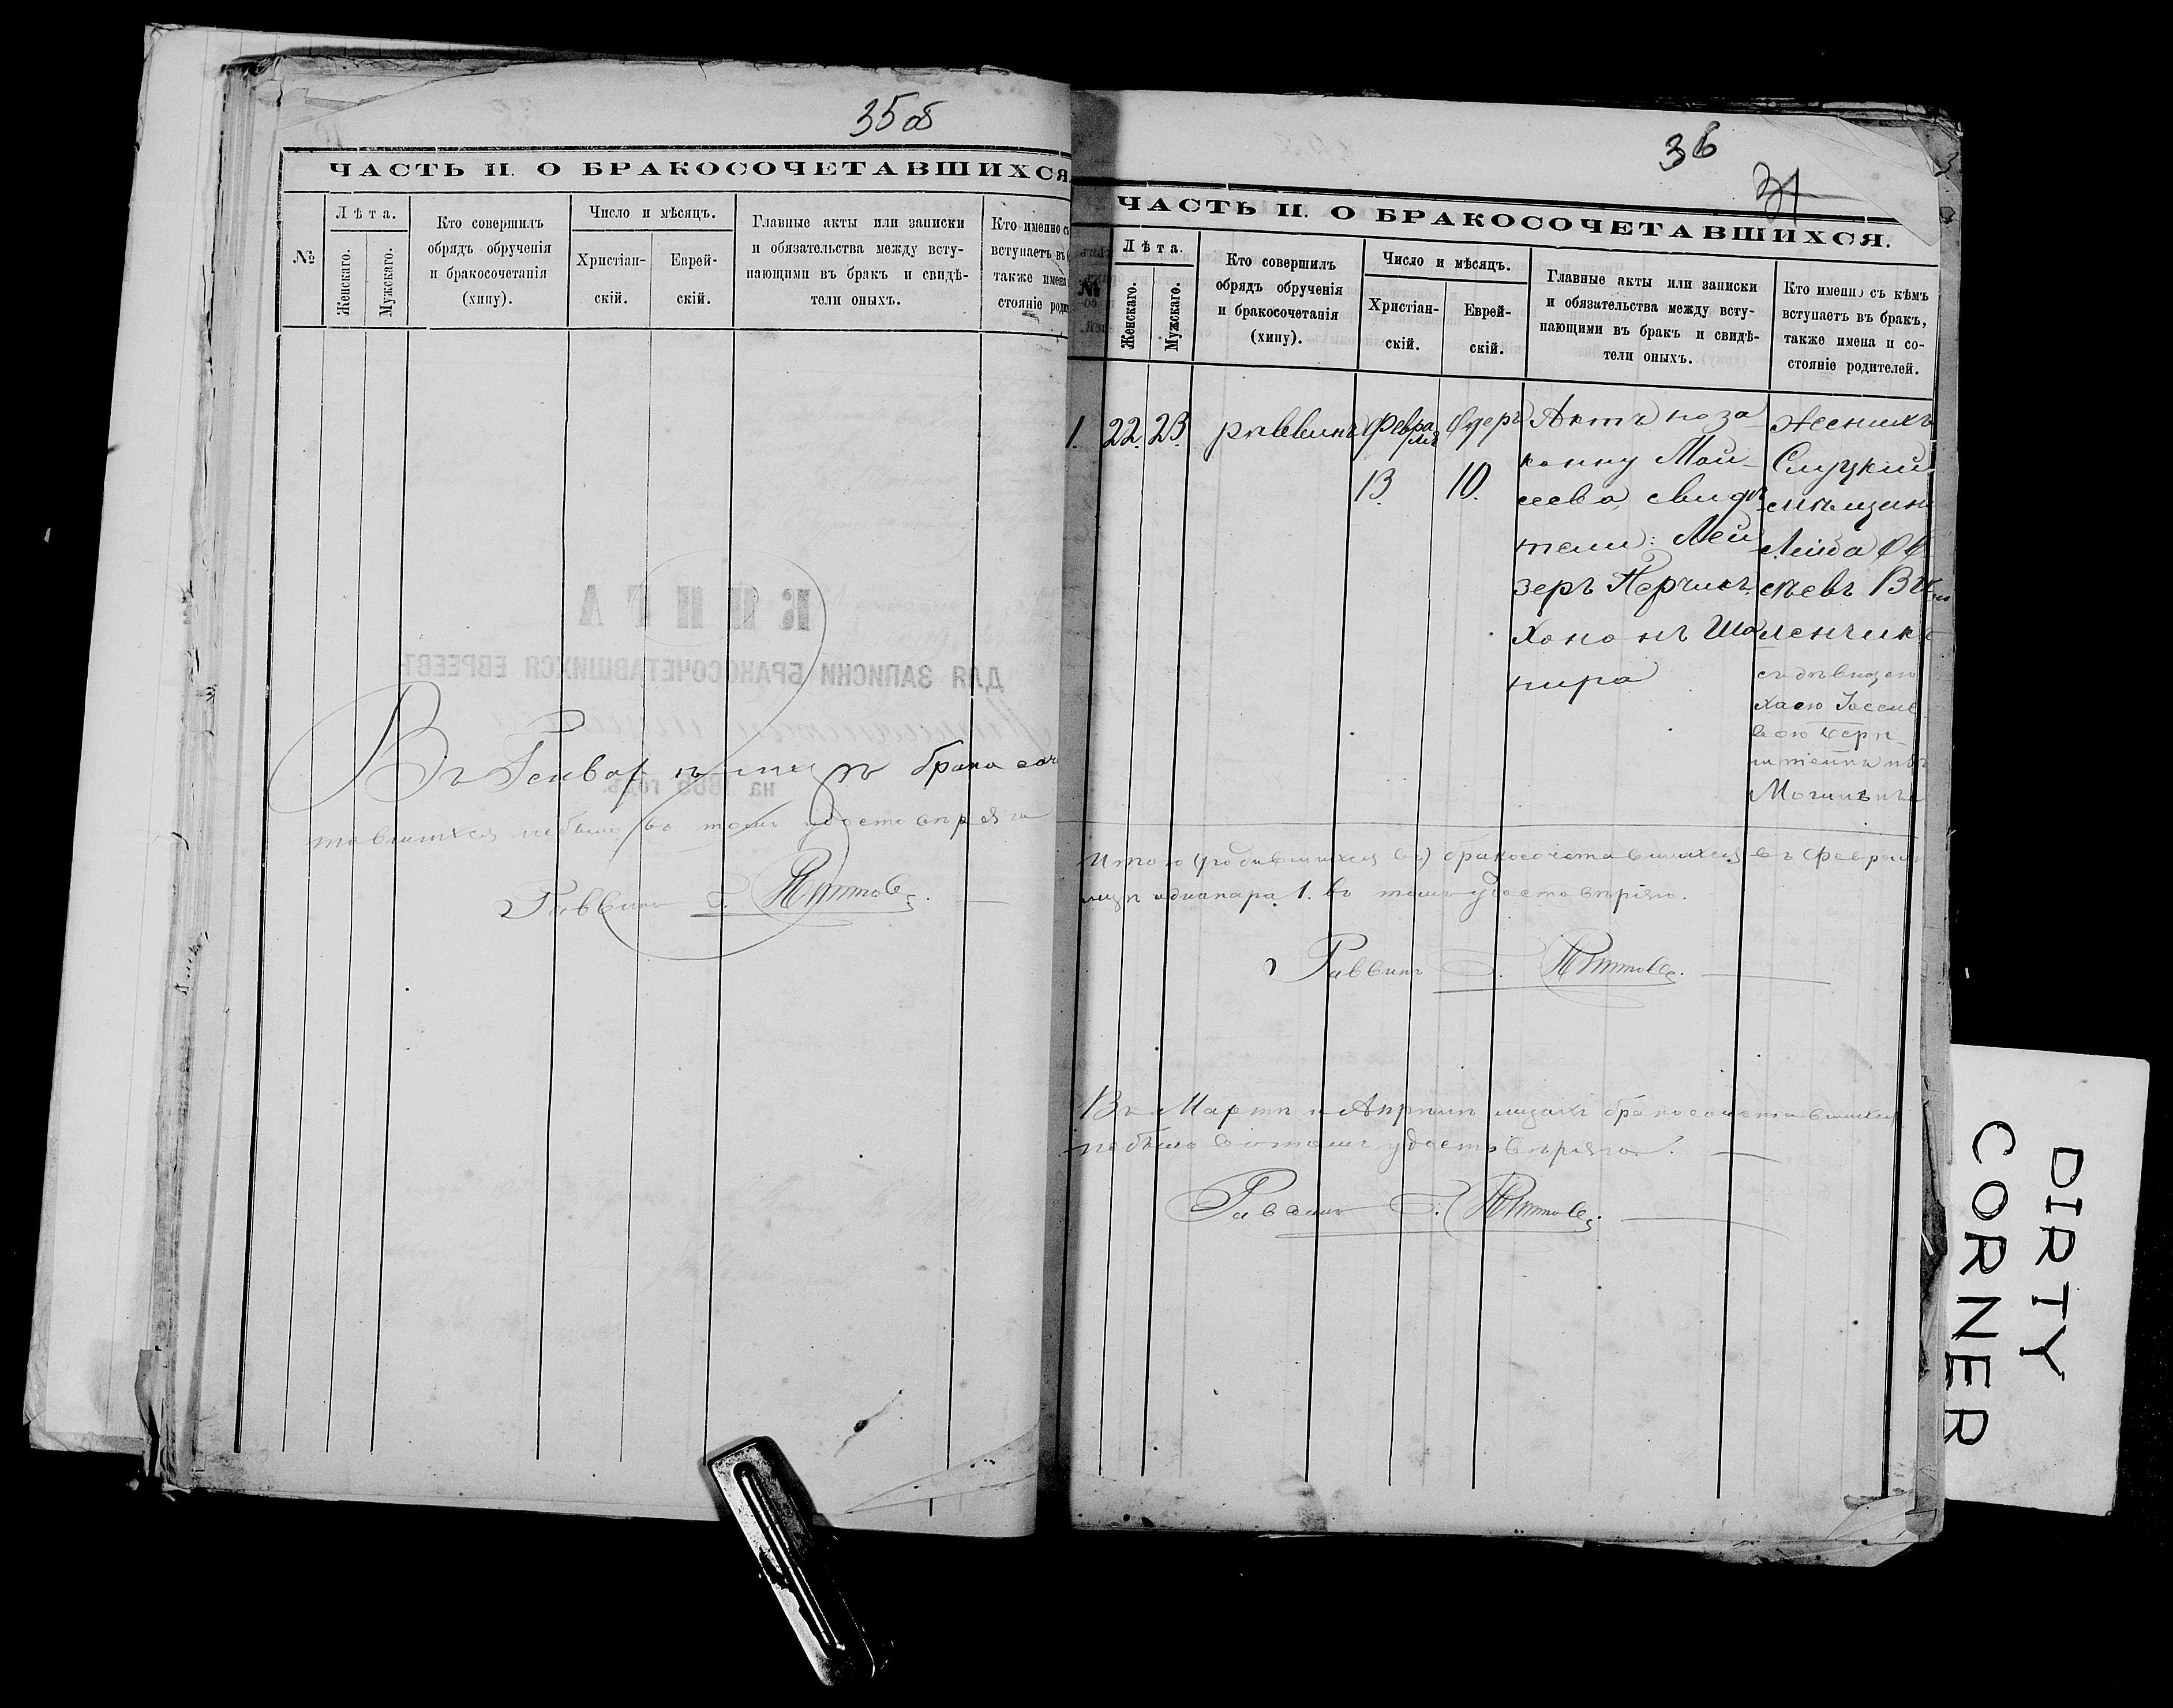 35 об
ЧАСТЬ II. О БРАКОСОЧЕТАВШИХСЯ
№
Лѣта.
Женскаго.
Мужскаго.
Кто совершилъ
обрядъ обрученія
и бракосочетанія
(хипу).
Число и мѣсяцъ.
Христіан-
скій.
Еврей-
скій.
Главные акты или записки
и обязательства между всту-
пающими въ бракъ и свидѣ-
тели оныхъ.
Кто именно съ
вступаетъ въ
также имена
стояніе роди
КНИГА
ДЛЯ ЗАПИСКИ БРАКОСОЧЕТАВШИХСЯ ЕВРЕЕВЪ
годъ.
на
Въ Генварѣ м-цѣ брако соче
тавшихся небыло въ томъ удостовѣряю
Раввинъ
36
31
ЧАСТЬ II. О БРАКОСОЧЕТАВШИХСЯ.
№
Лѣта.
Женскаго.
Мужскаго.
Кто совершилъ
обрядъ обрученія
и бракосочетанія
(хипу).
Число и мѣсяцъ.
Христіан-
скій.
Еврей-
скій.
Главные акты или записки
и обязательства между всту-
пающими въ бракъ и свидѣ-
тели оныхъ.
Кто именно съ кѣмъ
вступаетъ въ бракъ,
также имена и со-
стояніе родителей.
1. 22. 23. раввинъ Февра
ля 13. Одеръ 10.
Актъ по за
кону Мои-
сеева, свидѣ
тели: Лей
зеръ Перчикъ
Хононъ Ша
пира
Женихъ
Слуцкій
мѣщан
Лейба
сѣевъ
ленчикъ
съ дѣвицею
Хаею
вою
Могильнѣ
Итого (родившихся въ) бракосочетавшихся въ Февралѣ
мцѣ однапара 1. въ томъ удостовѣряю.
Раввинъ
Въ Мартѣ и Апрѣлѣ мцахъ бракосочетавшихся
небыло вотомъ удостовѣряю.
Раввинъ
DIRTY
CORNER